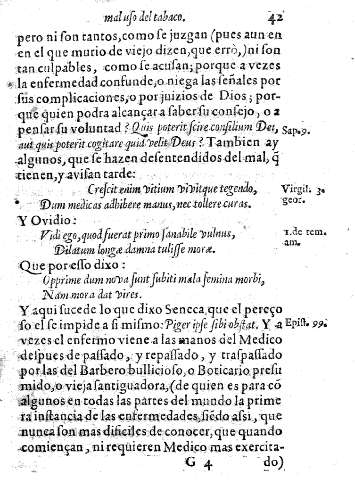 mal uso del tabaco. 42
pero ni son tantos, como se juzgan (pues aun en
en el que murio de viejo dizen, que errò,) ni son
tan culpables, como se acusan; porque a vezes
la enfermedad confunde, o niega las señales por
sus complicaciones, o por juizios de Dios; por-
que quien podra alcançar a saber su consejo, o a
pensar su voluntad? Quis poterit scire consilium Dei, Sap. 9.
aut quis poterit cogitare quid velit Deus? Tambien ay
algunos, que se hazen desentendidos del mal, q̃
tienen, y avisan tarde:
Crescit enim vitium vivitque tegendo, Virgil. 3.
Dum medicas adhibere manus, nec tollere curas. geor.
Y Ovidio:
Vidi ego, quod fuerat primo sanabile vulnus, 1. de rem.
Dilatum longæ damna tulisse moræ. am.
Que por esso dixo:
Opprime dum nova sunt subiti mala semina morbi,
Nam mora dat vires.
Y aqui sucede lo que dixo Seneca, que el pereço
so el se impide a si mismo: Piger ipse sibi obstat. Y a Epist. 99.
vezes el enfermo viene a las manos del Medico
despues de passado, y repassado, y traspassado
por las del Barbero bullicioso, o Boticario presu
mido, o vieja santiguadora, (de quien es para cõ
algunos en todas las partes del mundo la prime
ra instancia de las enfermedades, siẽdo assi, que
nunca son mas dificiles de conocer, que quando
comiençan, ni requieren Medico mas exercita-
G 4 do)